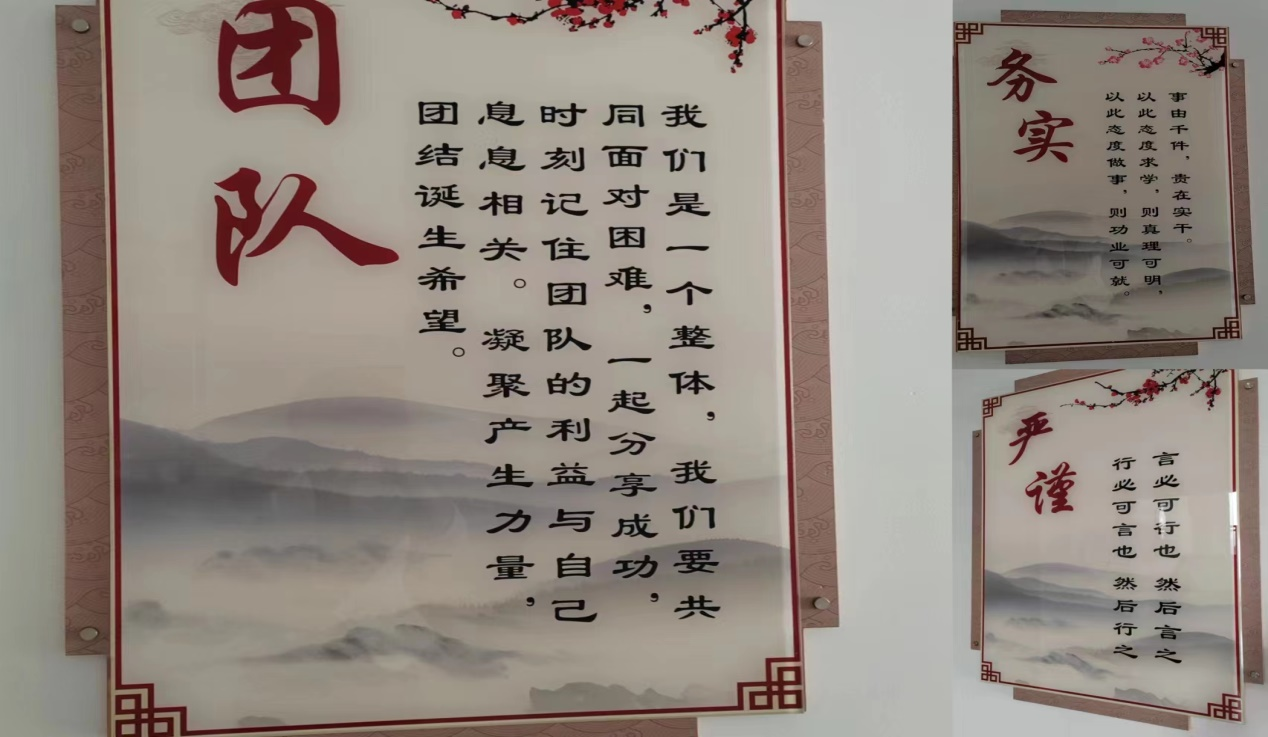 团队
我们是一个整体，我们要共
同面对困难，一起分享成功，
时刻记住团队的利益与自己
息息相关。凝聚产生力量，
团结诞生希望。
务实
事由千件，贵在实干。
以此态度求学，则真理可明，
以此态度做事，则功业可就。
严谨
言必可行也 然后言之
行必可言也 然后行之